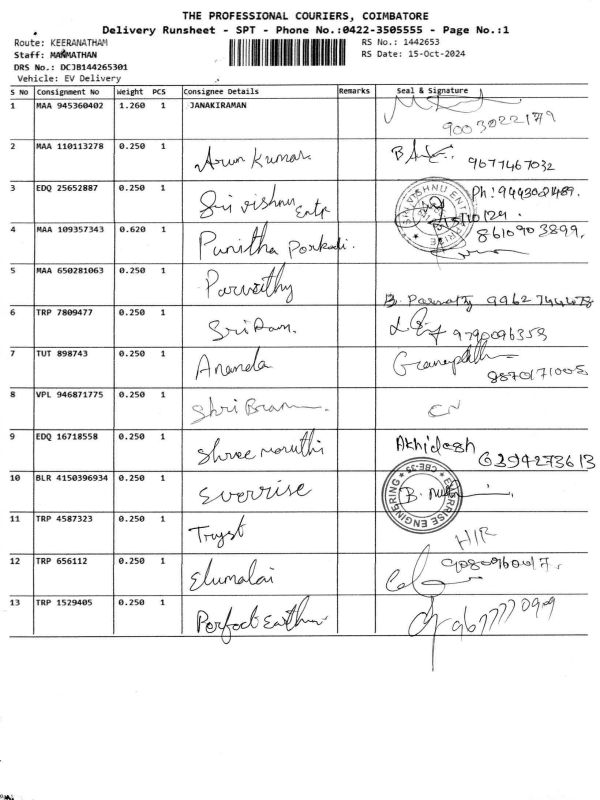 THE PROFESSIONAL COURIERS, COIMBATORE
Delivery Runsheet - SPT - Phone No.:0422-3505555 - Page No.:1
Route: KEERANATHAM RS No.: 1442653
Staff: MANMATHAN RS Date: 15-Oct-2024
DRS No.: DCJB144265301
Vehicle: EV Delivery
S No Consignment No Weight PCS Consignee Details Remarks Seal & Signature
1 MAA 945360402 1.260 1 JANAKIRAMAN
9003022179
2 MAA 110113278 0.250 1 Arun Kumar 9677467032
3 EDQ 25652887 0.250 1 Sri Vishnu Entp Ph: 9443021489.
4 MAA 109357343 0.620 1 Punitha Porkodi. 8610903899.
5 MAA 650281063 0.250 1 Parvathy B. Parvathy
6 TRP 7809477 0.250 1 Sri Ram. 9790096353
7 TUT 898743 0.250 1 Ananda 9870171008
8 VPL 946871775 0.250 1 Shri CN
9 EDQ 16718558 0.250 1 Shree maruthi Akhidesh 6394273613
10 BLR 4150396934 0.250 1 Everrise
EVERRISE ENGINEERING CBE-35
11 TRP 4587323 0.250 1 Tryst HIR
12 TRP 656112 0.250 1 Elumalai
13 TRP 1529405 0.250 1 Perfect